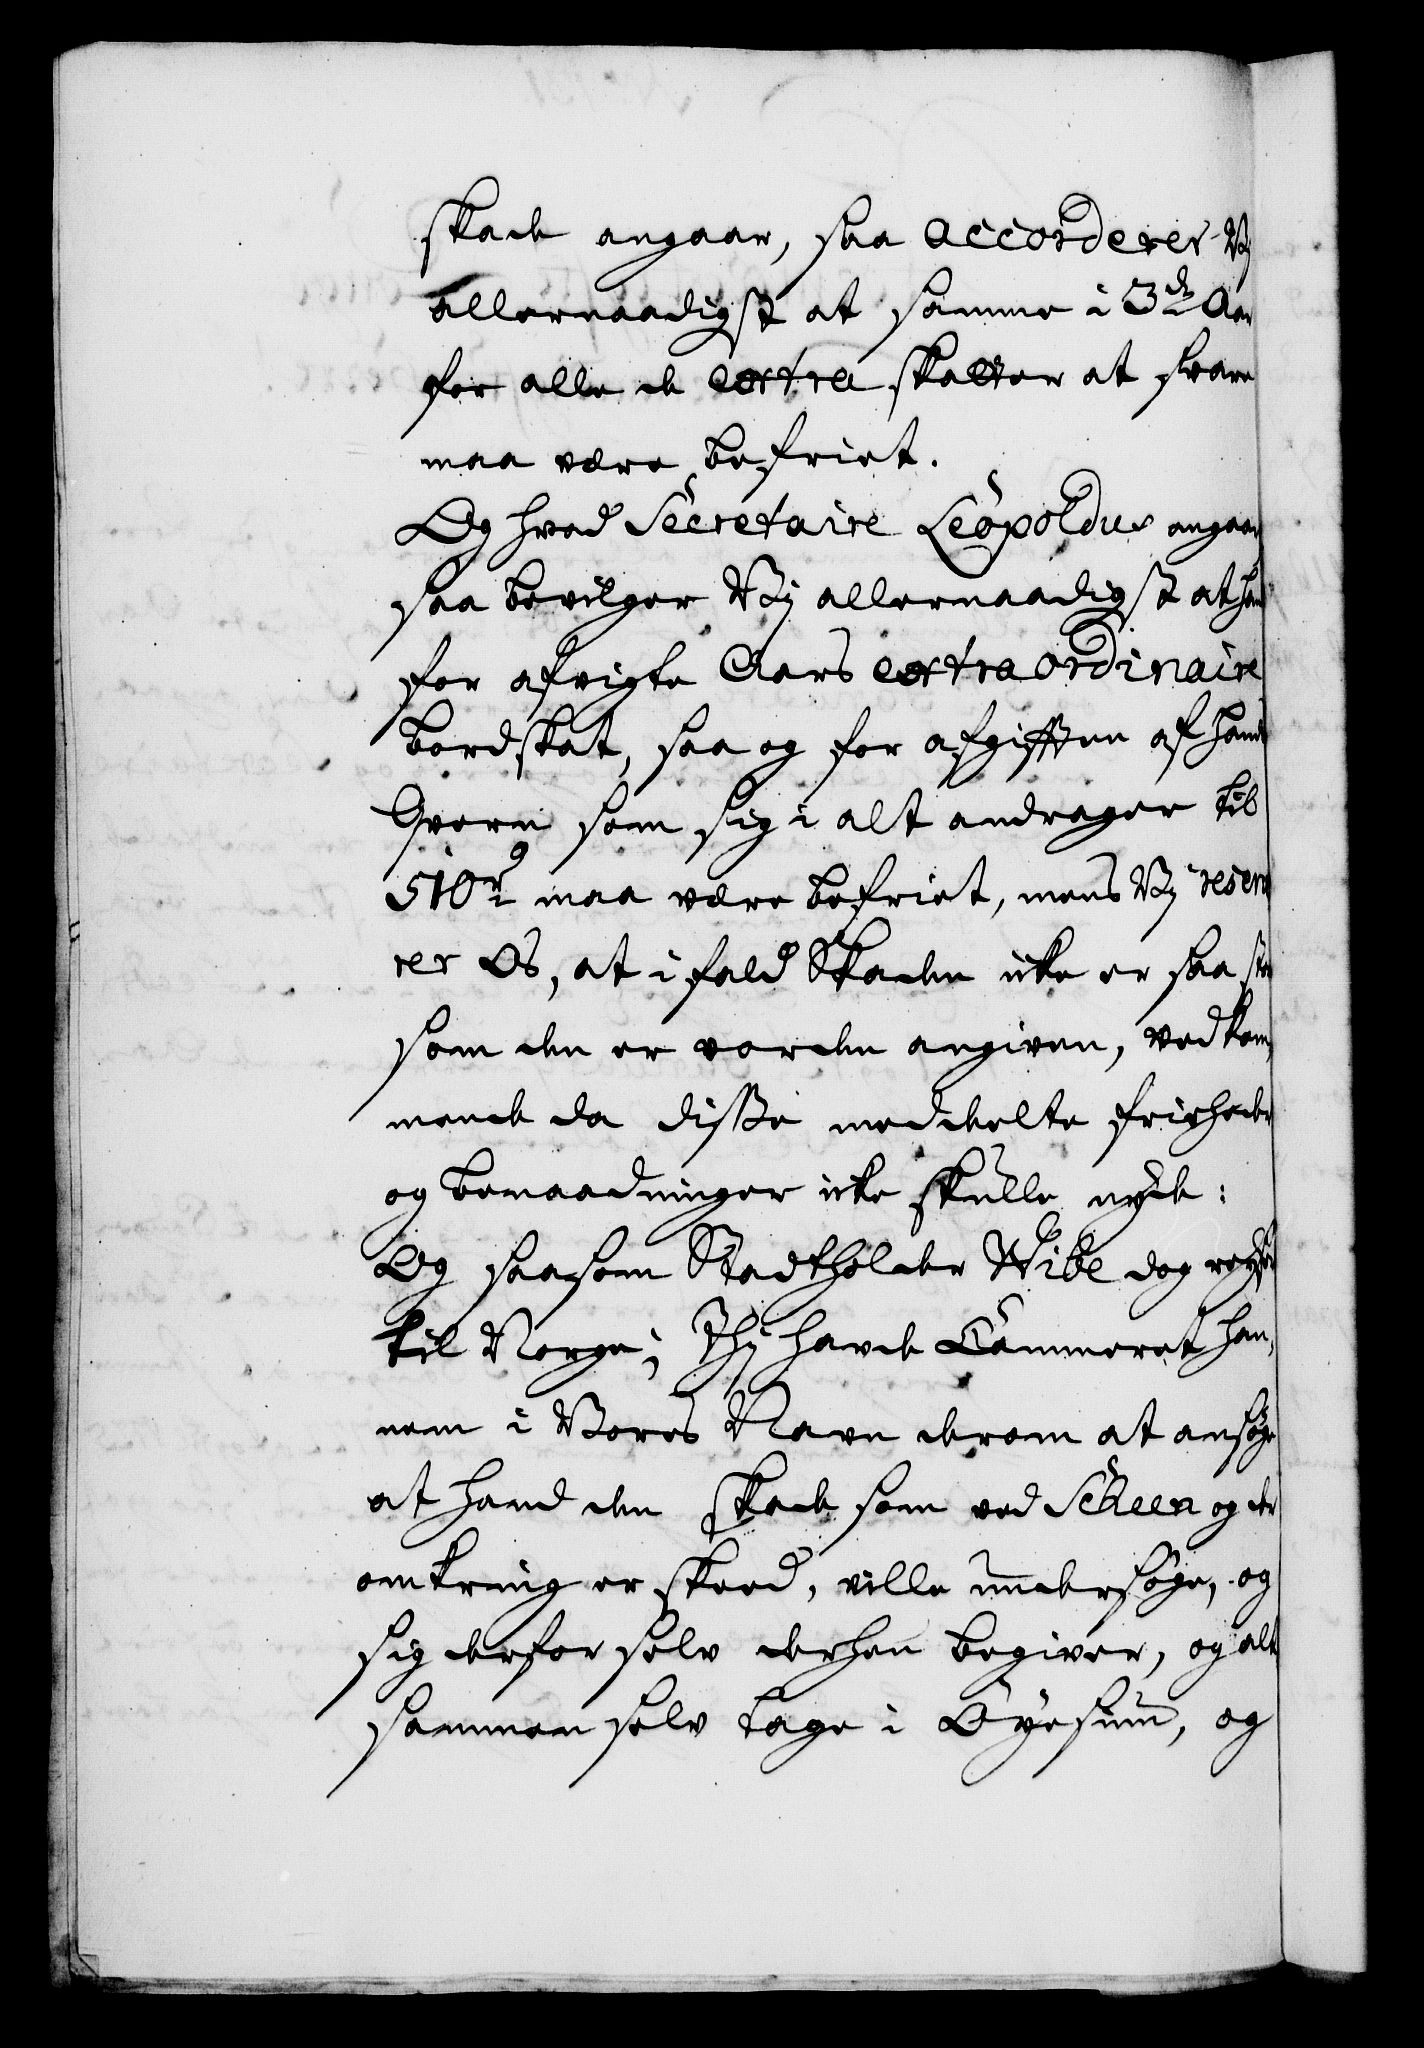 skade angaar, saa Accorderer Vj
allernaadigst at samme i 3de Aar
for alle de extra skatter at svare
maa være befriet.
Og hvad Secretaire Leopoldus angaar
saa bevilger Vj allernaadigst at hand
for afvigte Aars extraordinaire
bordskat, saa og for afgifften af hands
Qvern som sig i alt andrager til
510 rd maa være befriet, mens Vj reserve
rer Os, at i fald Skaden icke er saa stor
som den er vorden angiven, vedkom,
mende da disse meddeelte friheder
og benaadninger icke skulle nyde:
Og saasom Stadtholder Wibe dog reyser
til Norge, Thj hafde Cammeret han,
nem i Vores Nafn derom at ansøge
at hand den skade som ved Scheen og der
omkring er skeed, ville undersøge, og
sig derfor selv derhen begiver, og alt
sammen selv tage i Øyesiun, og